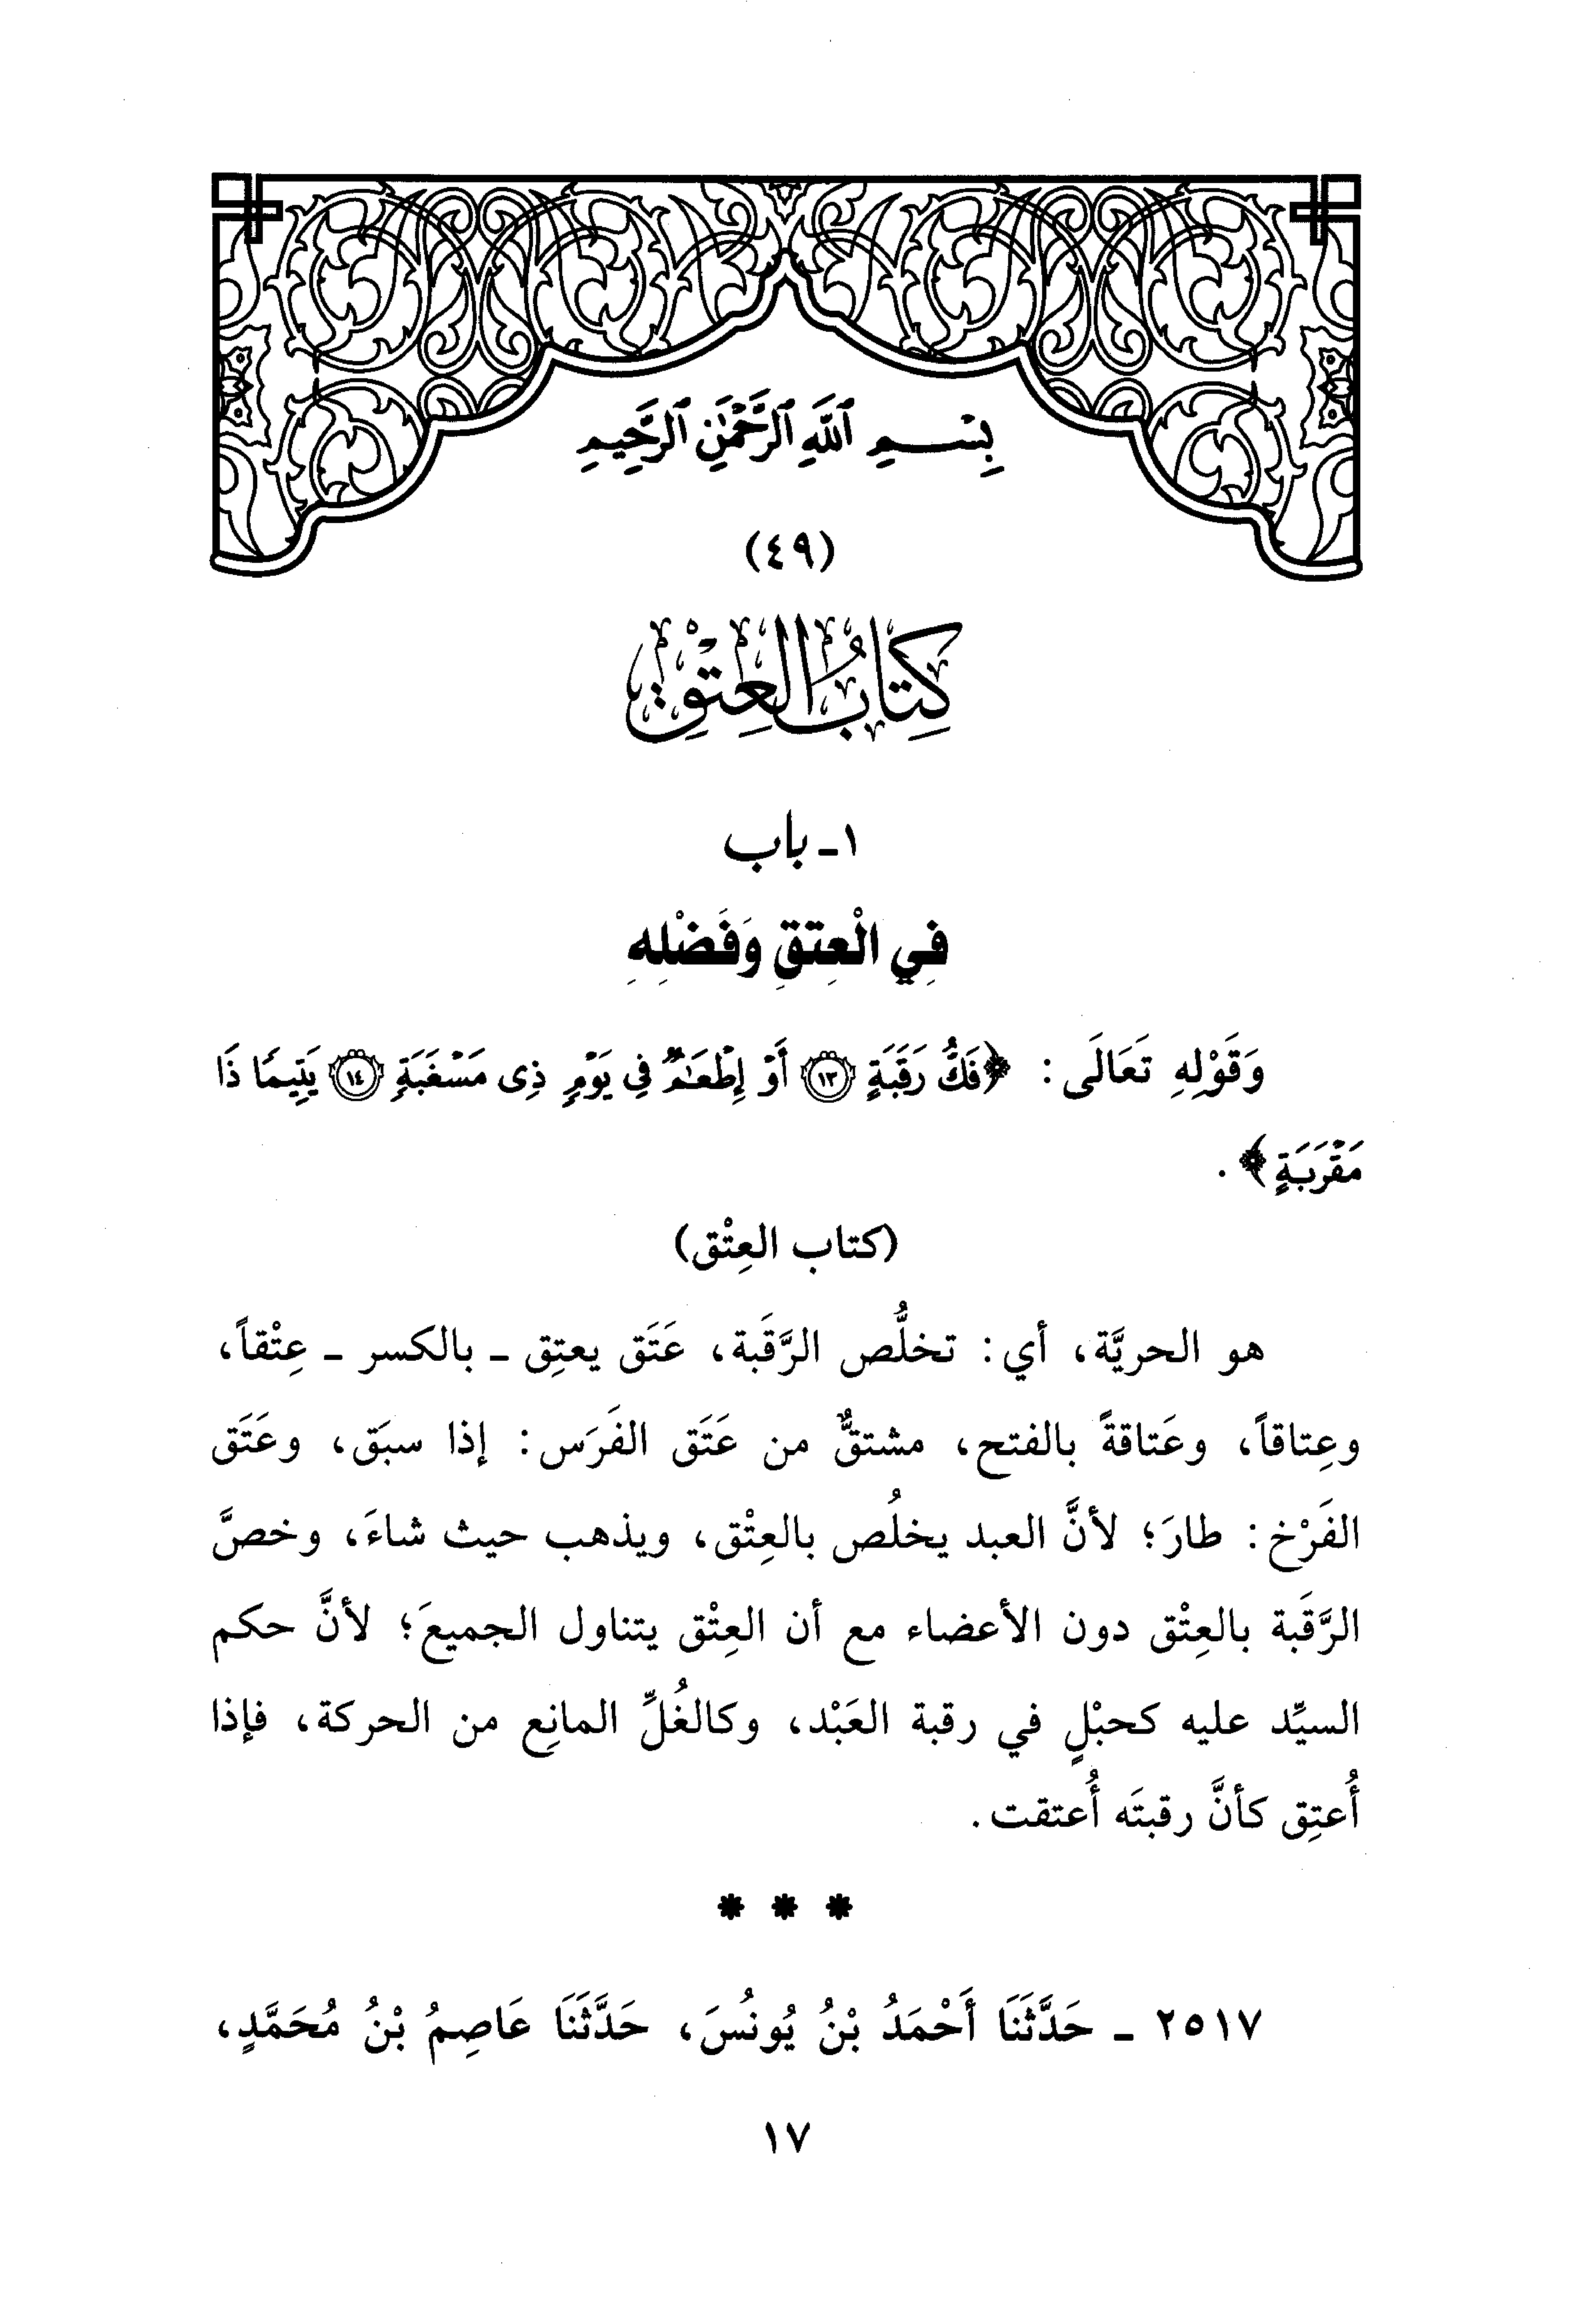 بِسْمِ ٱللَّهِ ٱلرَّحْمَٰنِ ٱلرَّحِيمِ
(٤٩)
كِتَابُ الْعِتْقِ
١ ـ باب
فِي الْعِتقِ وَفَضْلِهِ
وَقَوْلِهِ تَعَالَى: ﴿فَكُّ رَقَبَةٍ ۝١٣ أَوْ إِطْعَٰمٌ فِي يَوْمٍ ذِى مَسْغَبَةٍ ۝١٤ يَتِيمًا ذَا
مَقْرَبَةٍ﴾.
(كتاب العِتْق)
هو الحريَّة، أي: تخلُّص الرَّقَبة، عَتَق يعتِق ـ بالكسر ـ عِتْقاً،
وعِتاقاً، وعَتاقةً بالفتح، مشتقٌّ من عَتَق الفَرَس: إذا سبَق، وعَتَق
الفَرْخ: طارَ؛ لأنَّ العبد يخلُص بالعِتْق، ويذهب حيث شاءَ، وخصَّ
الرَّقَبة بالعِتْق دون الأعضاء مع أن العِتْق يتناول الجميعَ؛ لأنَّ حكم
السيِّد عليه كحبْلٍ في رقبة العَبْد، وكالغُلِّ المانِع من الحركة، فإذا
أُعتِق كأنَّ رقبتَه أُعتقت.
* * *
٢٥١٧ ـ حَدَّثَنَا أَحْمَدُ بْنُ يُونُسَ، حَدَّثَنَا عَاصِمُ بْنُ مُحَمَّدٍ،
١٧